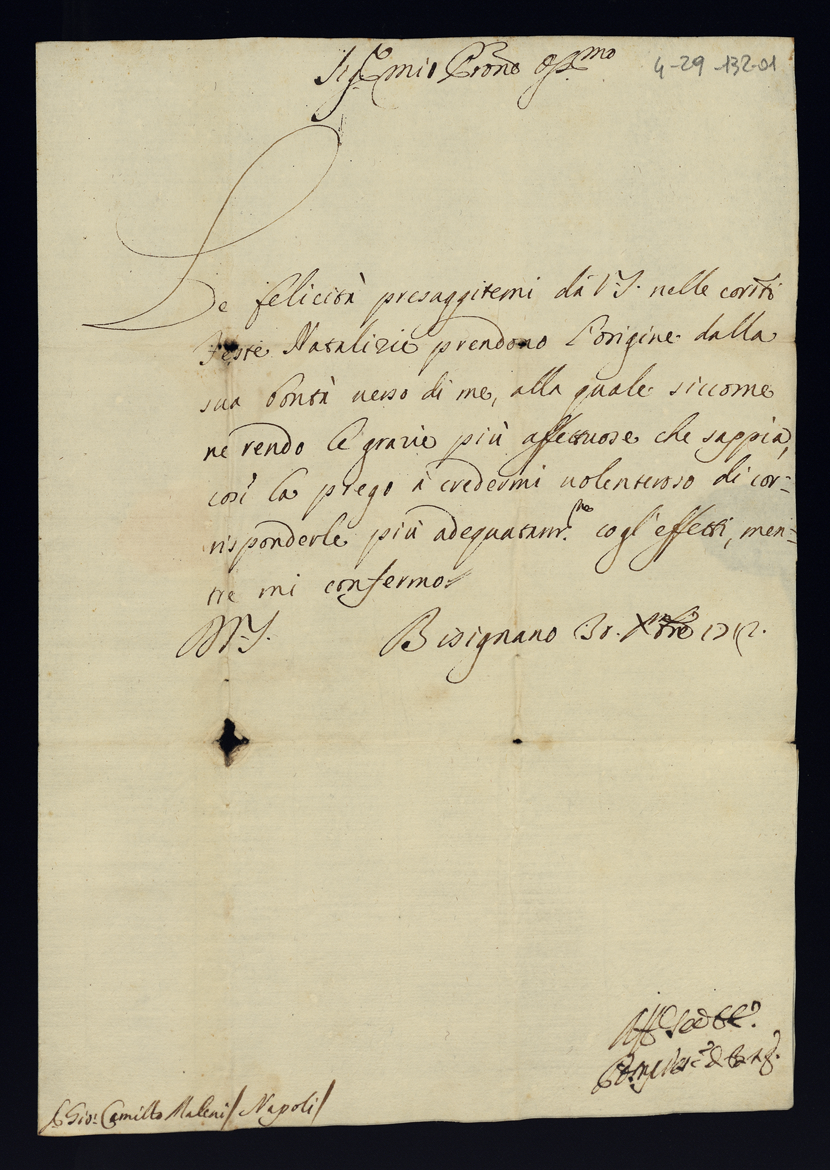 Sig.r mio Prone oss.mo
4-29-132-01
Le felicità presaggitemi da V.S. nelle corrti
Feste Natalizie prendono l'origine dalla
sua bontà verso di me, alla quale siccome
ne rendo le grazie più affettuose che sappia,
così la prego à credermi volenteroso di cor=
risponderle più adequatam.te cogl'effetti, men=
tre mi confermo
Di V.S. Bisignano 30. Xbre
Aff.o
S. Gio: Camillo Maleni / Napoli /